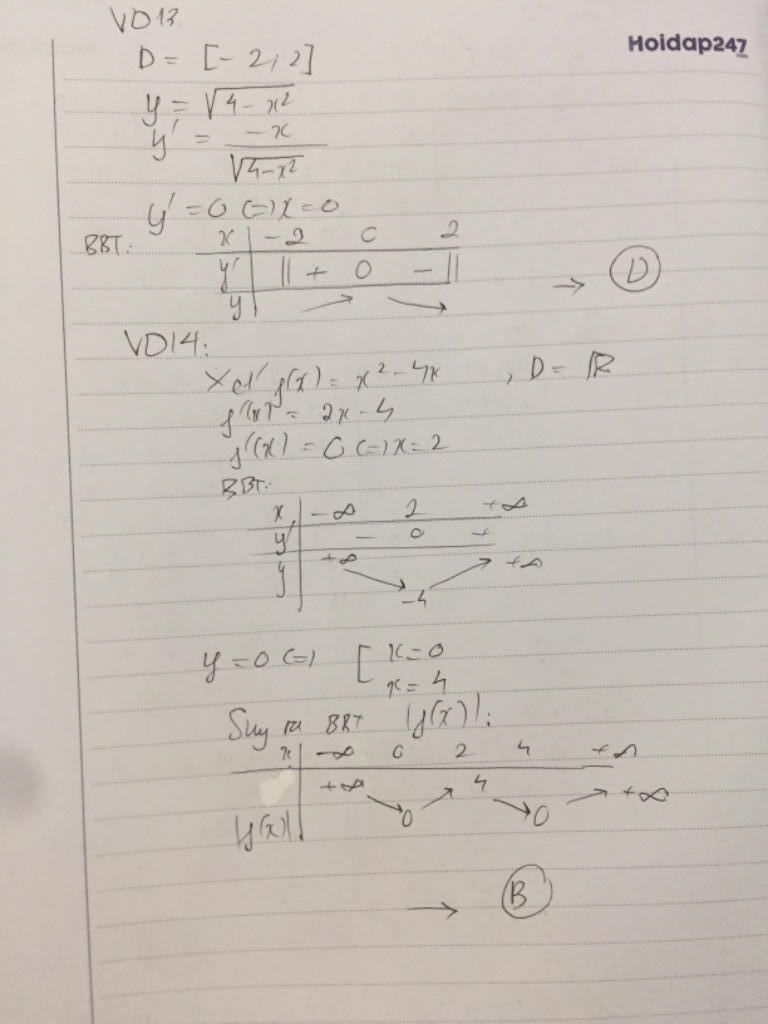 VD13
Hoidap247
D = [-2; 2]
y = √(4-x²)
y' = -x / √(4-x²)
y' = 0 (=) x = 0
BBT:
x | -2 0 2
y' | || + 0 - ||
y | ↗ ↘ → D
VD14:
Xét f(x) = x² - 4x , D = ℝ
f'(x) = 2x - 4
f'(x) = 0 (=) x = 2
BBT:
x | -∞ 2 +∞
y' | - 0 +
y | +∞ ↘ -4 ↗ +∞
y = 0 (=) [ x = 0
x = 4
Suy ra BBT |f(x)|:
x | -∞ 0 2 4 +∞
|f(x)| | +∞ ↘ 0 ↗ 4 ↘ 0 ↗ +∞
→ B